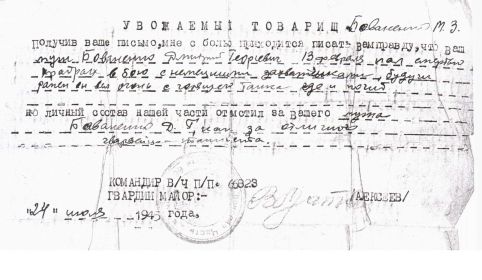 УВОЖАЕМЫЙ ТОВАРИЩ Баваненко М.З.
Получив Ваше письмо, мне с болью приходится писать вам правду, что Ваш
муж Бованенко Дмитрий Георгиевич 13 февраля пал смертью
храбрых в бою с немецкими захватчиками, будучи
ранен он вел огонь с горящего танка где и погиб
но личный состав нашей части отмстил за Вашего мужа
Баваненко Д. Г. как за отличного
КОМАНДИР В/Ч П/П
ГВАРДИИ МАЙОР:- /АЛЕКСЕЕВ/
"24" июля 1943 года.